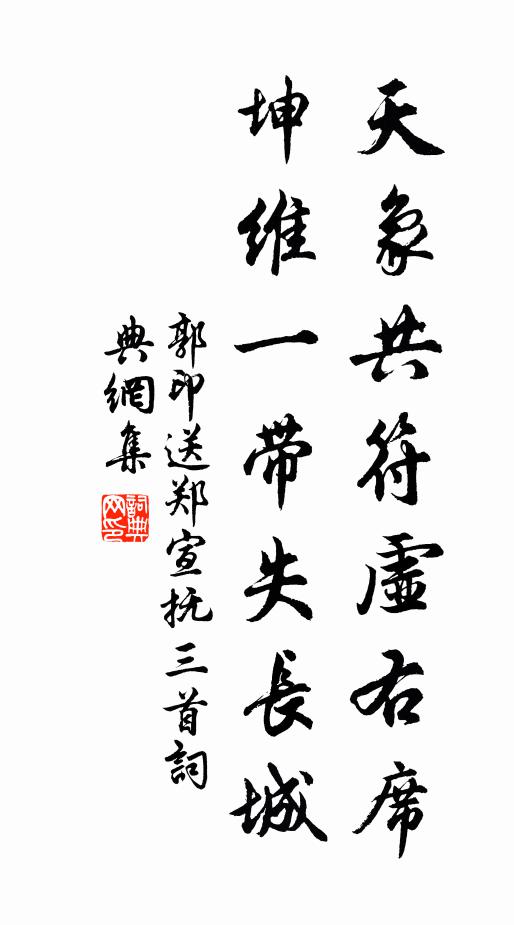 天象共符虛右席
坤維一带失長城
郭印送郑宣抚三首詞
典網集
詞典网印